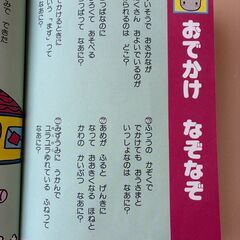 おでかけ なぞなぞ
いそうで おさかなが
くさん およいでいるのが
られるのは どこ？
っぱなのに
ろくて あそべる
っぱ なあに？
でかけるときに
いう「ます」って
なあに？
ふつうの かぞくで
でかけても おうさまと
いっしょなのは なあに？
あめが ふると げんきに
なって おおきくなる ほねと
かわの かいぶつ なあに？
みずうみに うかんで
ユラユラゆれている ふねって
なあに？
できた